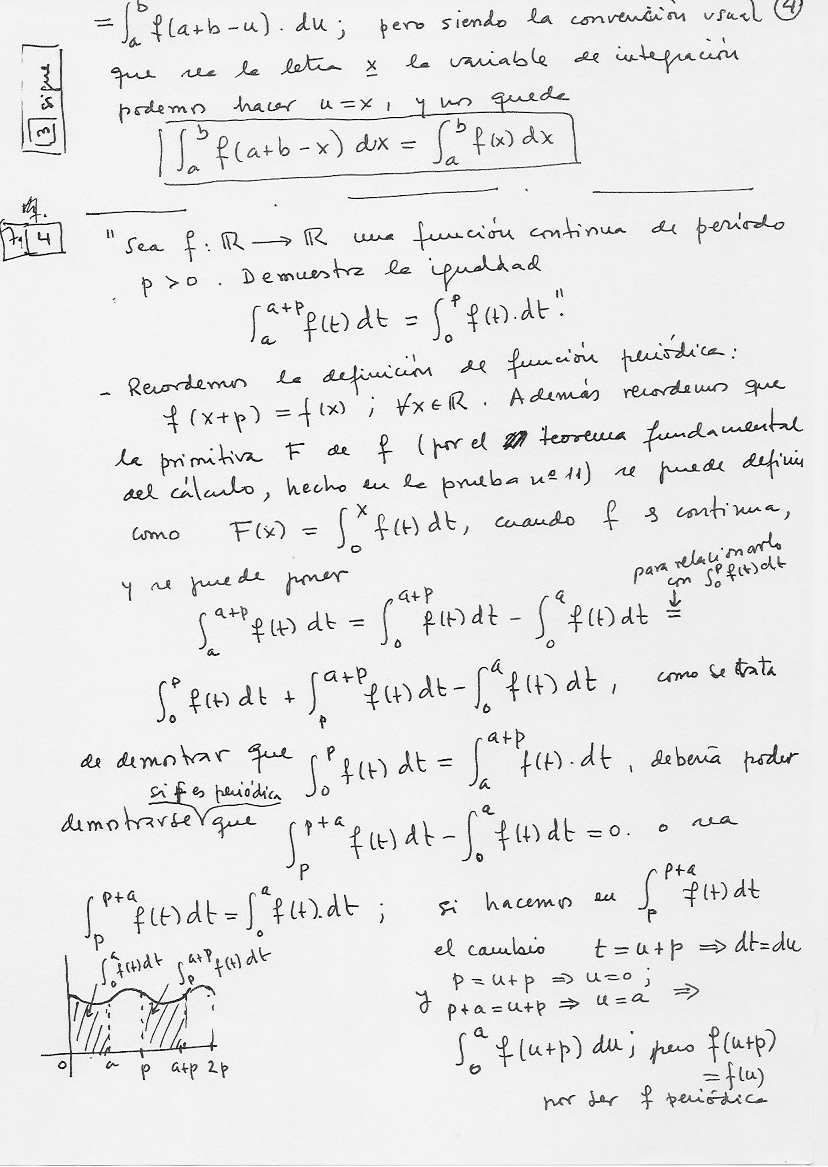 = ∫_a^b f(a+b-u). du; pero siendo la convención usual (4)
3 sigue
que sea la letra x la variable de integración
podemos hacer u=x, y nos queda
∫_a^b f(a+b-x) dx = ∫_a^b f(x) dx
4
"Sea f: ℝ → ℝ una función continua de periodo
p > 0. Demuestra la igualdad
∫_a^{a+p} f(t) dt = ∫_0^p f(t).dt".
- Recordemos la definición de función periódica:
f(x+p) = f(x); ∀x∈ℝ. Además recordemos que
la primitiva F de f (por el teorema fundamental
del cálculo, hecho en la prueba nº 11) se puede definir
como F(x) = ∫_0^x f(t) dt, cuando f es continua,
y se puede poner
para relacionarlo
con ∫_0^p f(t) dt
↓
∫_a^{a+p} f(t) dt = ∫_0^{a+p} f(t) dt - ∫_0^a f(t) dt =
∫_0^p f(t) dt + ∫_p^{a+p} f(t) dt - ∫_0^a f(t) dt, como se trata
de demostrar que ∫_0^p f(t) dt = ∫_a^{a+p} f(t).dt, debería poder
si f es periódica
demostrarse que ∫_p^{p+a} f(t) dt - ∫_0^a f(t) dt = 0. o sea
∫_p^{p+a} f(t) dt = ∫_0^a f(t).dt; si hacemos en ∫_p^{p+a} f(t) dt
el cambio t=u+p ⇒ dt=du
p=u+p ⇒ u=0;
y p+a=u+p ⇒ u=a ⇒
∫_0^a f(u+p) du; pero f(u+p)
= f(u)
por ser f periódica
∫_0^a f(t) dt ∫_p^{a+p} f(t) dt
0 a p a+p 2p